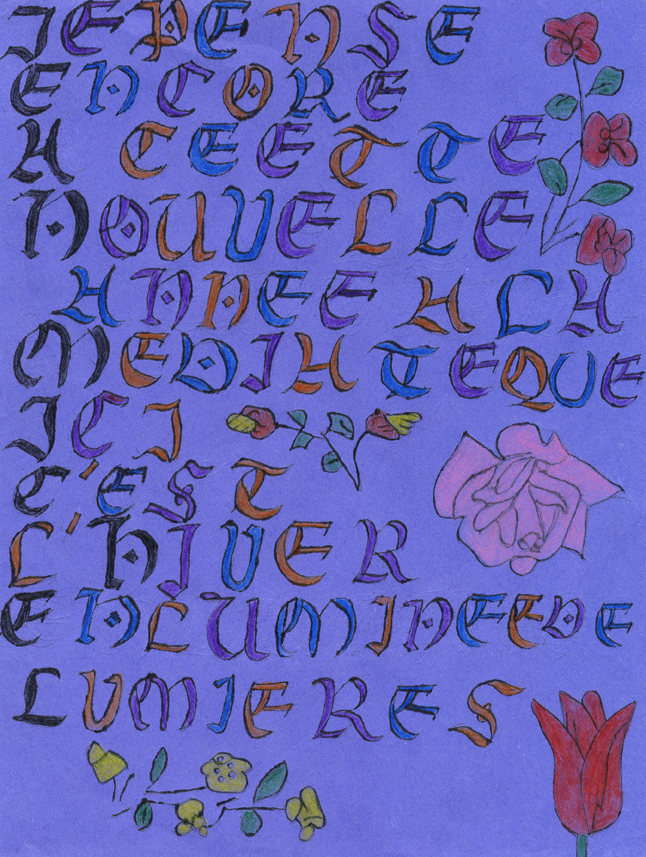 JE PENSE
ENCORE
A CEETTE
NOUVELLE
ANNEE A LA
MEDIATEQUE
ICI
C'EST
L'HIVER
ENLUMINEE DE
LUMIERES